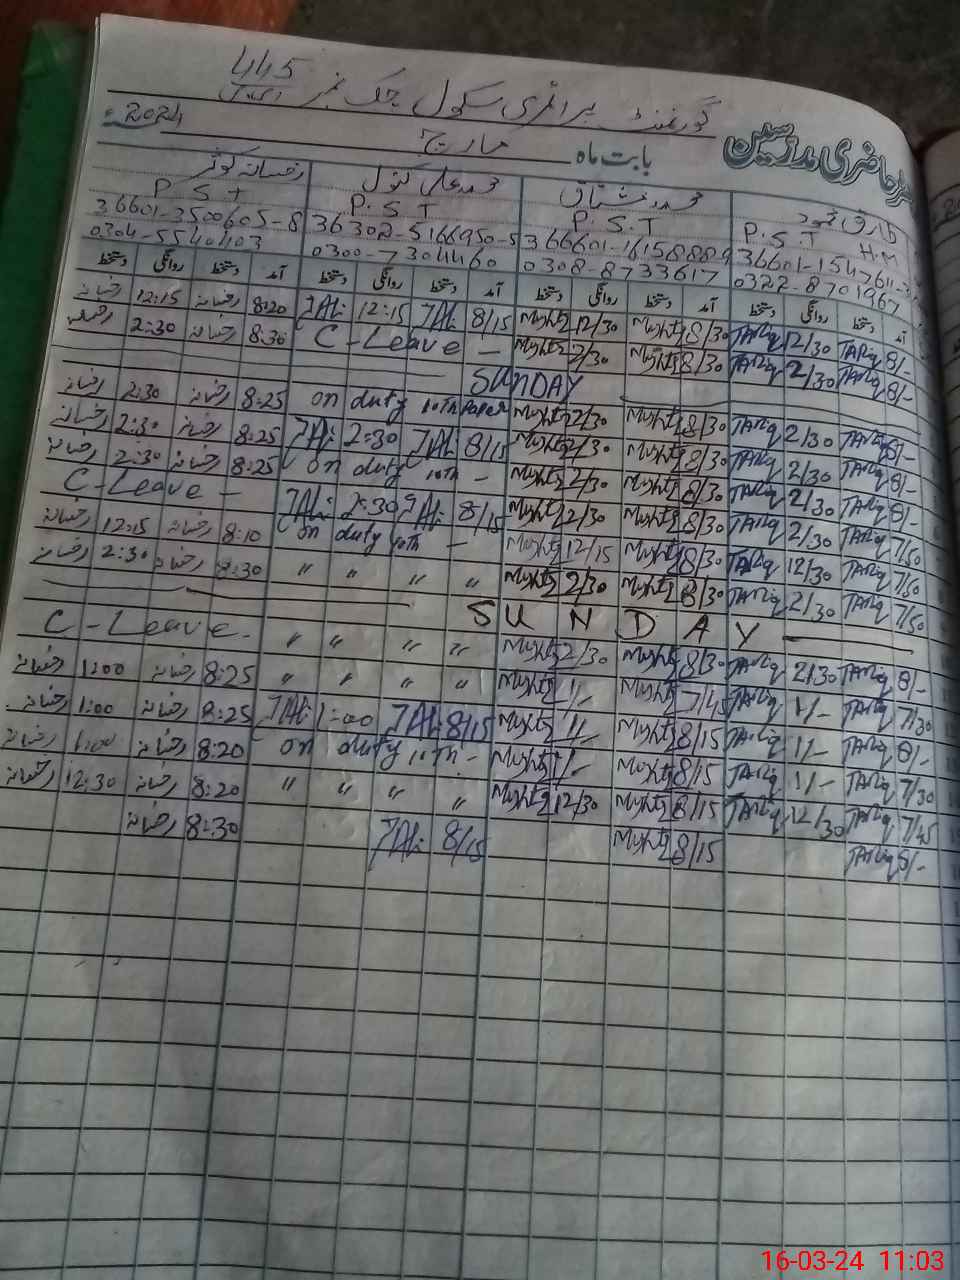 گورنمنٹ پرائمری سکول چک نمبر 445
حاضری مدرسین بابت ماہ مارچ 2024
طارق محمود محمد مشتاق محمد علی کنول رخسانہ کوثر
P.S.T H.M P.S.T P.S.T P.S.T
36302-5166950-5 36601-3500605-8
0322-8701967 0308-8733617 0300-7304460 0304-5540403
آمد دستخط روانگی دستخط آمد دستخط روانگی دستخط آمد دستخط روانگی دستخط آمد دستخط روانگی دستخط
8/- TARiq 12/30 TARiq 8/30 Mushtq 12/30 Mushtq 8/15 JAli 12:15 JAli 8:20 رخسانہ 12:15 رخسانہ
8/- TARiq 2/30 TARiq 8/30 Mushtq 2/30 Mushtq C-Leave - 8:30 رخسانہ 2:30 رخسانہ
SUNDAY
8/- TARiq 2/30 TARiq 8/30 Mushtq 2/30 Mushtq on duty 10th Paper 8:25 رخسانہ 2:30 رخسانہ
8/- TARiq 2/30 TARiq 8/30 Mushtq 2/30 Mushtq 8/15 JAli 2:30 JAli 8:25 رخسانہ 2:30 رخسانہ
8/- TARiq 2/30 TARiq 8/30 Mushtq 2/30 Mushtq on duty 10th - 8:25 رخسانہ 2:30 رخسانہ
7/50 TARiq 2/30 TARiq 8/30 Mushtq 2/30 Mushtq 8/15 JAli 2:30 JAli C-Leave -
7/50 TARiq 12/30 TARiq 8/30 Mushtq 12/15 Mushtq on duty 10th - 8:10 رخسانہ 12:15 رخسانہ
7/50 TARiq 2/30 TARiq 8/30 Mushtq 2/30 Mushtq " " " " 8:30 رخسانہ 2:30 رخسانہ
SUNDAY
8/- TARiq 2/30 TARiq 8/30 Mushtq 2/30 Mushtq " " " " C-Leave -
7/30 TARiq 1/- TARiq 7/45 Mushtq 1/- Mushtq " " " " 8:25 رخسانہ 1:00 رخسانہ
8/- TARiq 1/- TARiq 8/15 Mushtq 1/- Mushtq 8/15 JAli 1:00 JAli 8:25 رخسانہ 1:00 رخسانہ
7/30 TARiq 1/- TARiq 8/15 Mushtq 1/- Mushtq on duty 10th - 8:20 رخسانہ 1:00 رخسانہ
7/45 TARiq 12/30 TARiq 8/15 Mushtq 12/30 Mushtq " " " " 8:20 رخسانہ 12:30 رخسانہ
8/- TARiq 8/15 Mushtq 8/15 JAli 8:30 رخسانہ
16-03-24 11:03